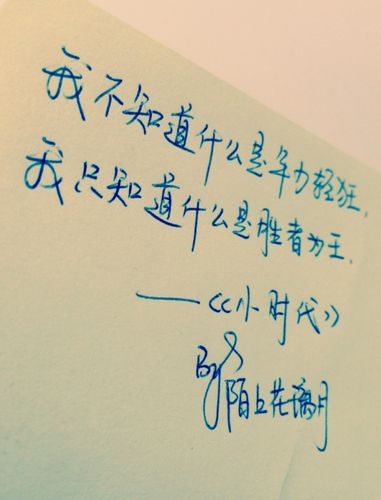 我不知道什么是年少轻狂，
我只知道什么是胜者为王。
——《小时代》
By 陌上花璃月